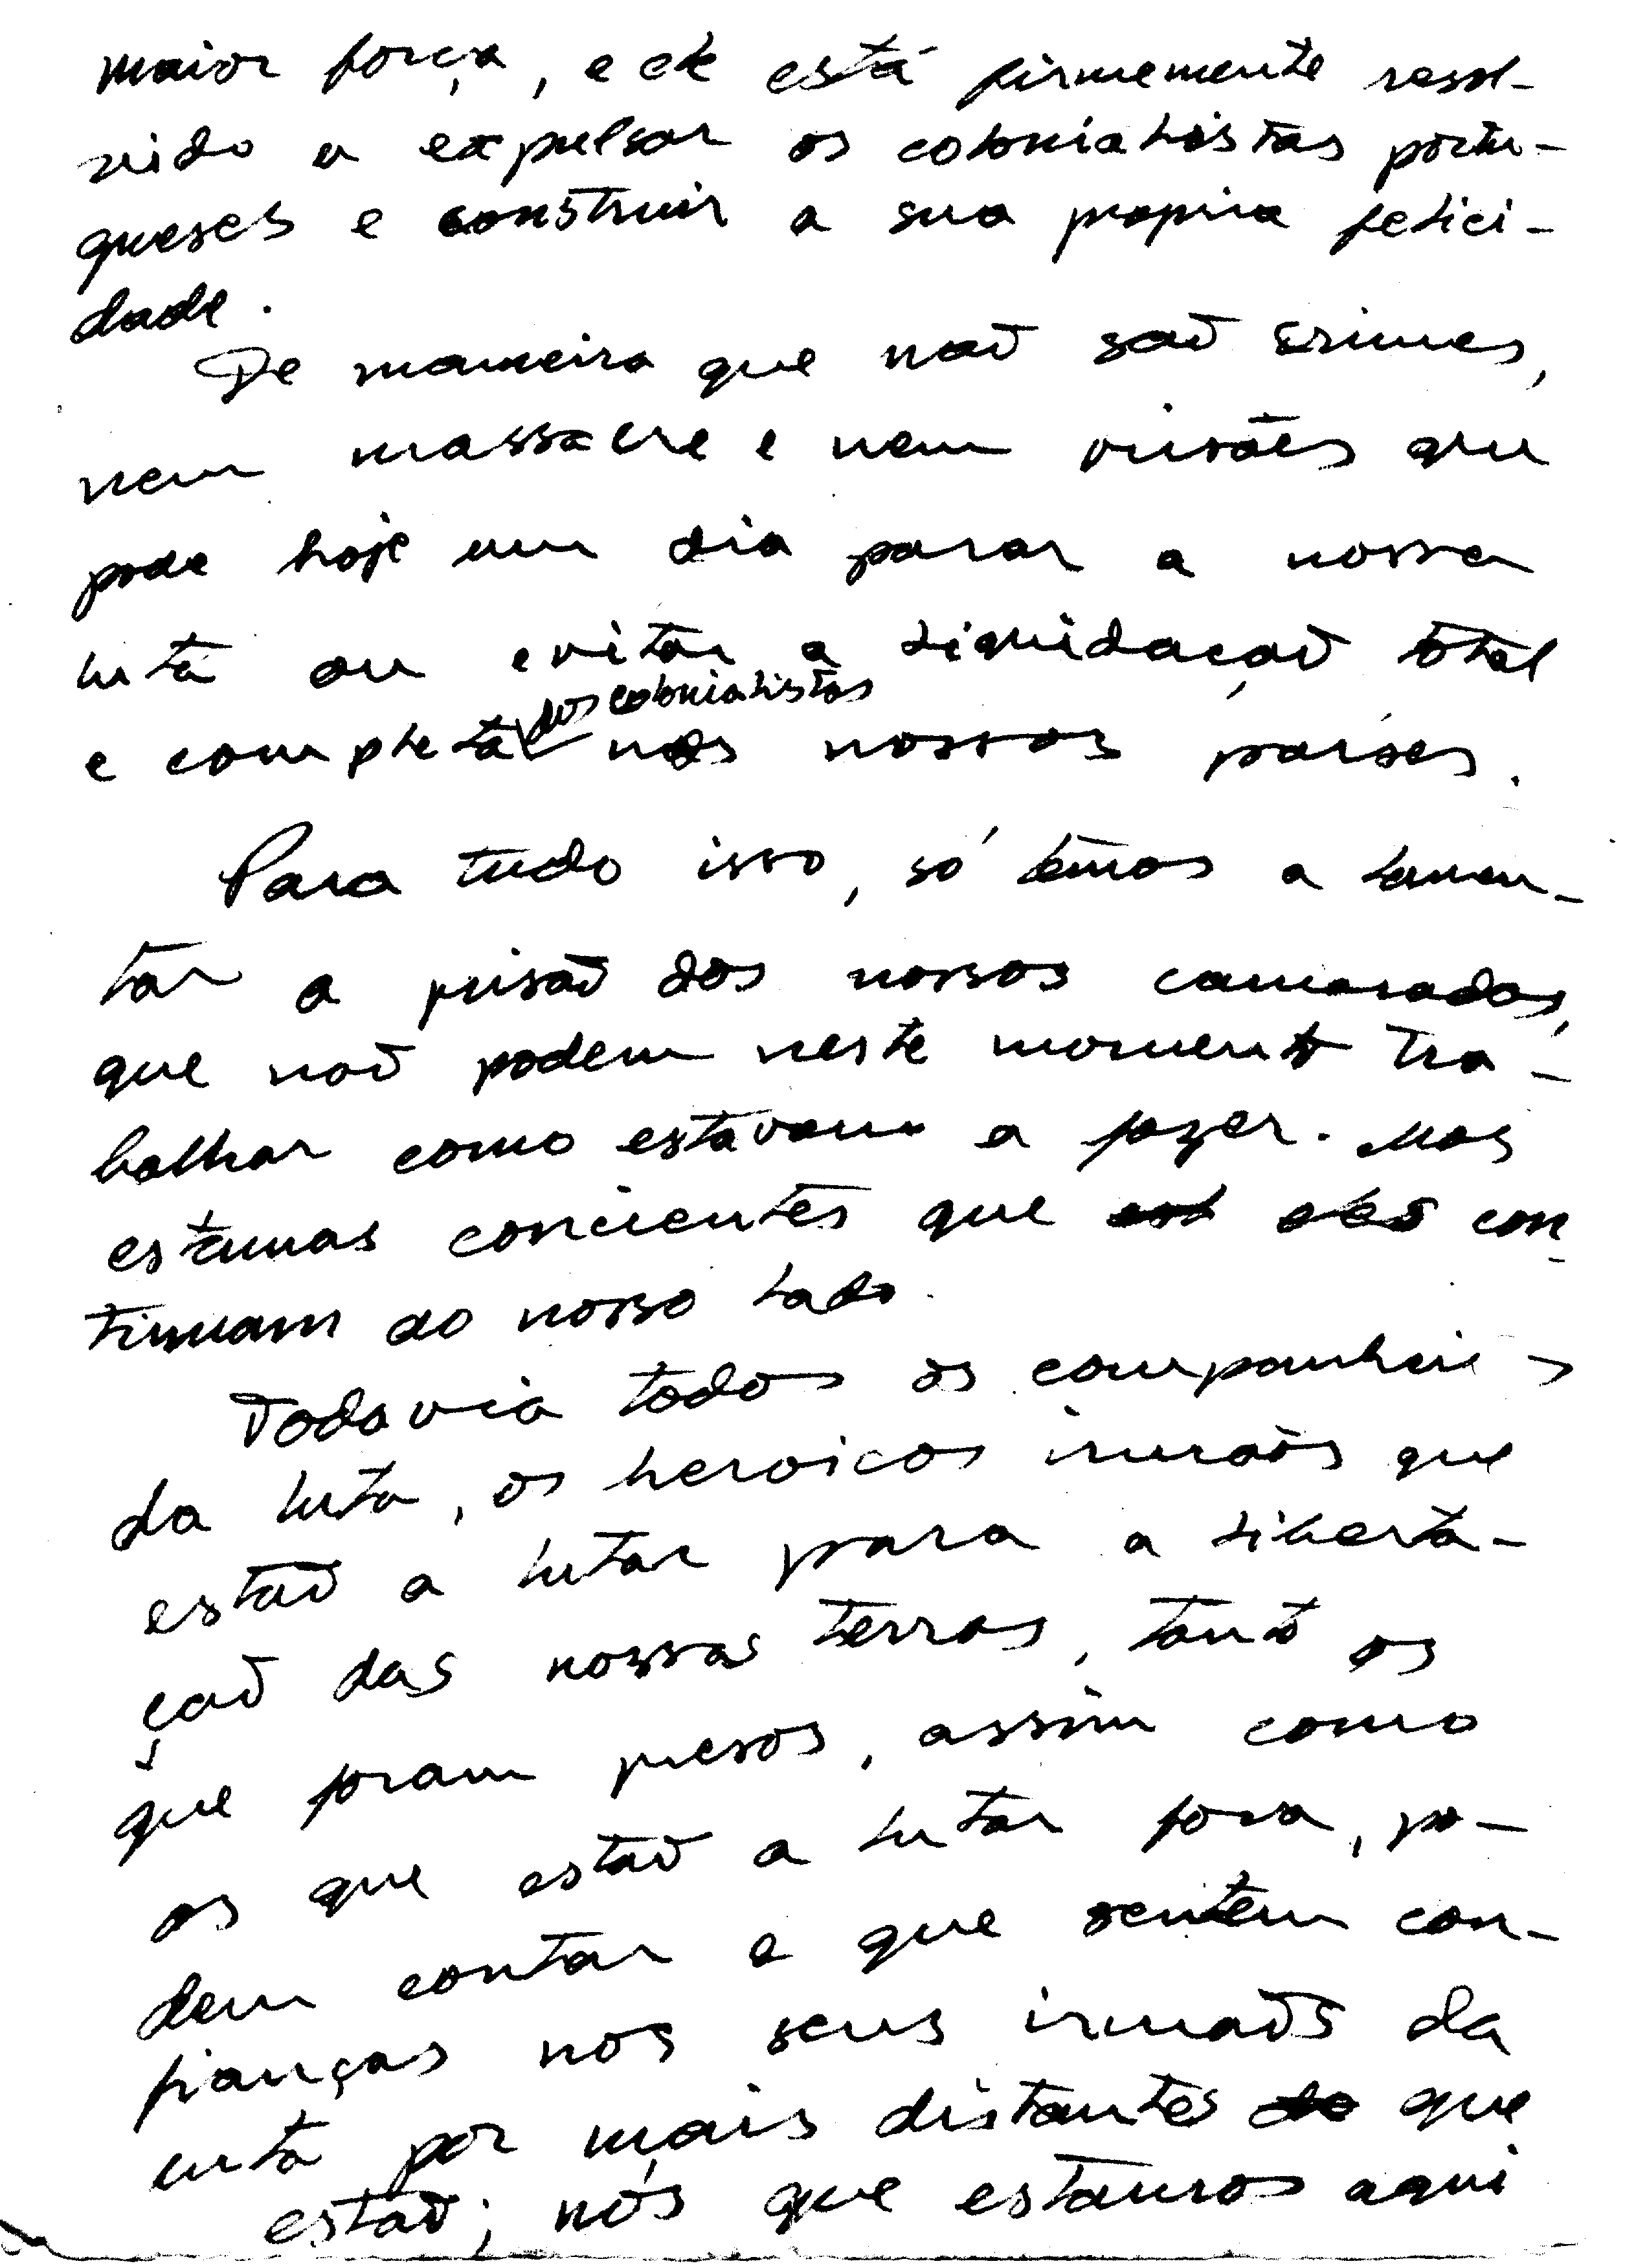 maior força, e ele está firmemente resol-
vido a expulsar os colonialistas portu-
gueses e construir a sua propria felici-
dade.
De maneira que naõ saõ crimes,
nem massacre e nem prisões que
pode hoje um dia parar a nossa
luta ou evitar a liquidaçaõ total
dos colonialistas
e completa nos nossos paises.
Para tudo isso, só temos a lamen-
tar a prisaõ dos nossos camaradas,
que naõ podem neste momento tra-
balhar como estavam a fazer. Mas
estamos concientes que eles con-
tinuam ao nosso lado.
Todavia todos os companheiros
da luta, os heroicos irmaõs que
estaõ a lutar para a liberta-
çaõ das nossas terras, tanto os
que foram presos, assim como
os que estaõ a lutar fora, po-
dem contar e que sentem con-
fianças nos seus irmaõs da
luta por mais distantes que
estaõ; nós que estamos aqui